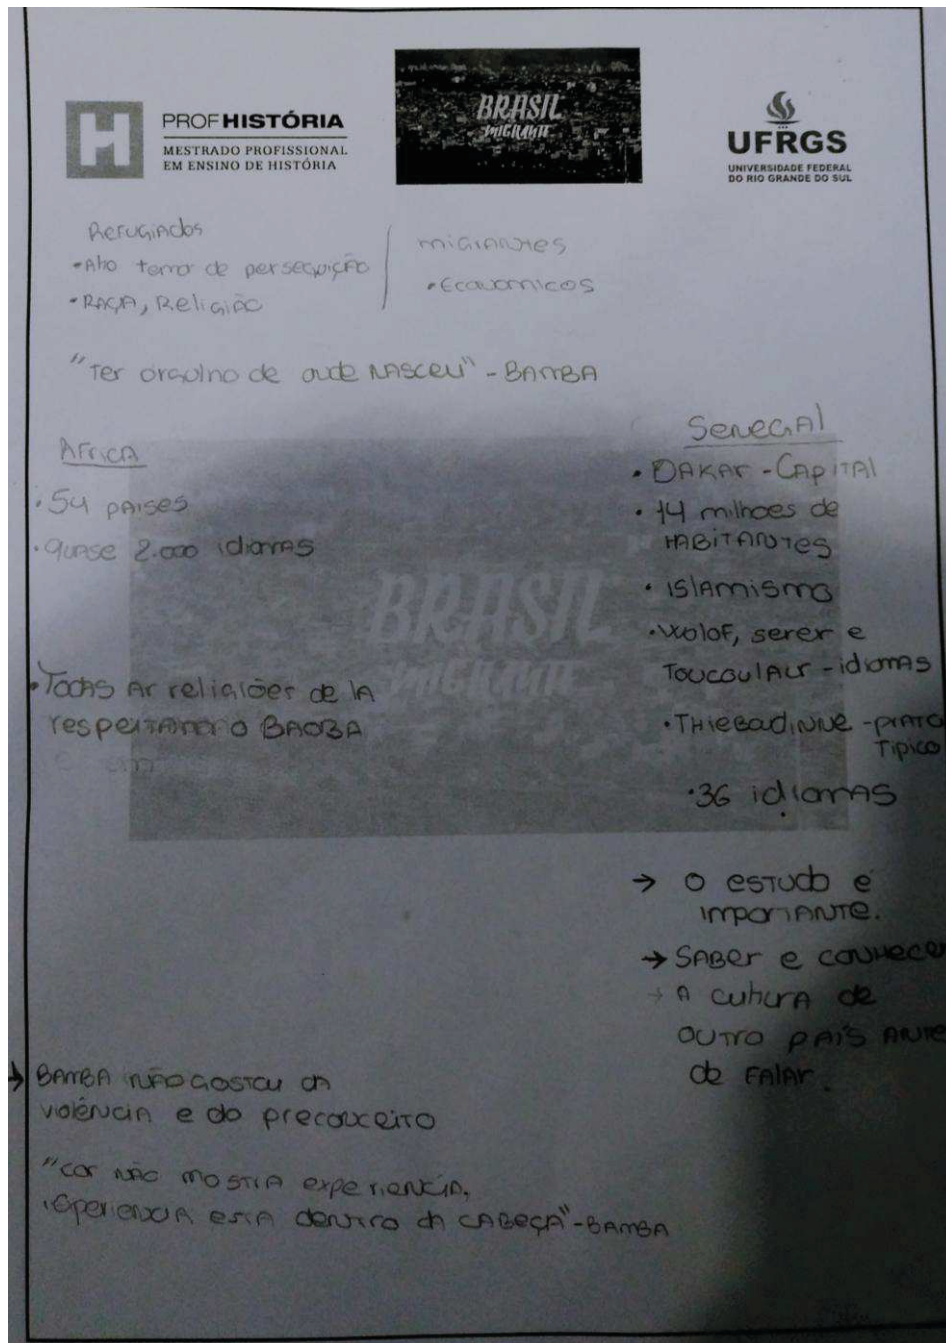 PROFHISTÓRIA
MESTRADO PROFISSIONAL
EM ENSINO DE HISTÓRIA
BRASIL
MIGRANTE
UFRGS
UNIVERSIDADE FEDERAL
DO RIO GRANDE DO SUL
Refugiados
• Alto temor de perseguição
• RAÇA, Religião
migrantes
• Economicos
"Ter orgulho de onde NASCEU" - BAMBA
Africa
• 54 paises
• quase 2.000 idiomas
• Todas As religiões de lA
respeitam o BAOBA
Senegal
• DAKAR - CAPITAL
• 14 milhoes de
HABITANTES
• ISlAmismo
• Wolof, serer e
Toucoulaur - idiomas
• THIEBOUDINNE - PRATO
Tipico
• 36 idiomas
BRASIL
MIGRANTE
→ O estudo e
importANTE.
→ SABer e conhecer
→ A cultura de
outro país ANTE
de FAlAr.
→ BAMBA NÃO GOSTOU da
violência e do preconceito
"cor NÃO mostra experiencia,
experiencia esta dentro da CABEÇA" - BAMBA